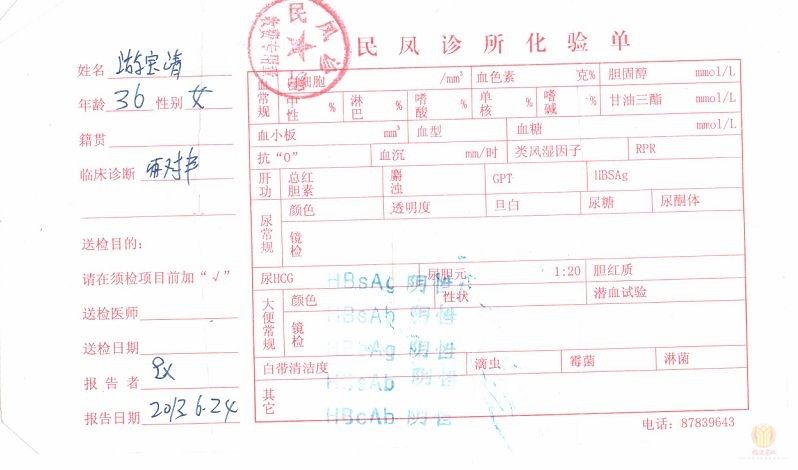 民凤诊所化验单
姓名
年龄 36 性别 女
籍贯
临床诊断
送检目的:
请在须检项目前加“√”
送检医师
送检日期
报告者
报告日期 2013.6.24
血常规 白细胞 /mm³ 血色素 克% 胆固醇 mmol/L
中性 % 淋巴 % 嗜酸 % 单核 % 嗜碱 % 甘油三酯 mmol/L
血小板 mm³ 血型 血糖 mmol/L
抗“O” 血沉 mm/时 类风湿因子 RPR
肝功 总红胆素 麝浊 GPT HBSAg
尿常规 颜色 透明度 旦白 尿糖 尿酮体
镜检
尿HCG 尿胆元 1:20 胆红质
大便常规 颜色 性状 潜血试验
镜检
白带清洁度 滴虫 霉菌 淋菌
其它
HBsAg 阴性
HBsAb 阴性
HBeAg 阴性
HBeAb 阴性
HBcAb 阴性
电话:87839643